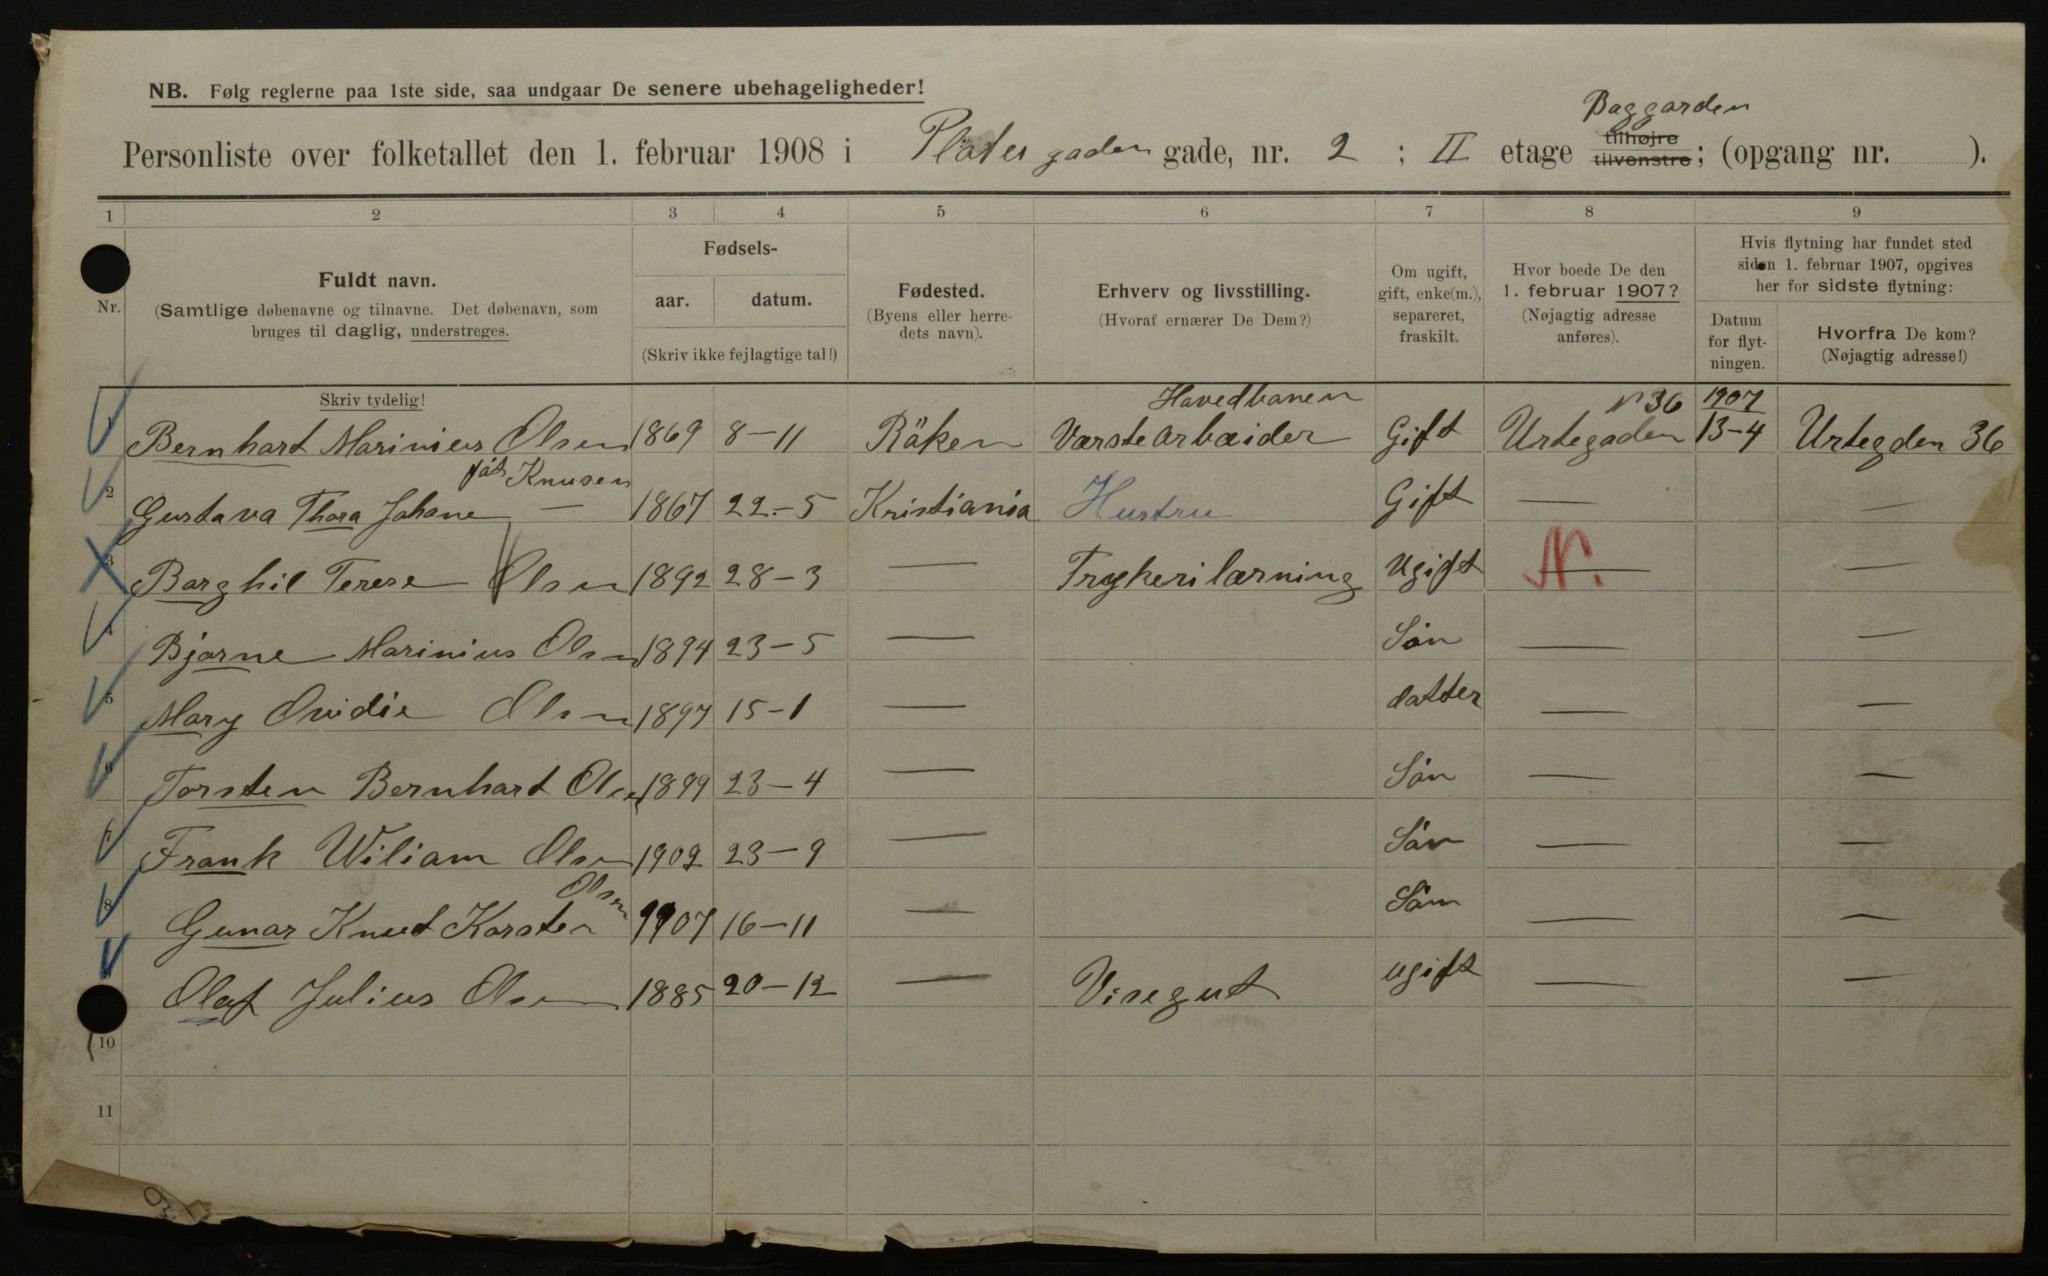 NB. Følg reglerne paa 1ste side, saa undgaar De senere ubehageligheder!
Baggarden
Personliste over folketallet den 1. februar 1908 i Plätersgaden gade, nr. 2 ; II etage tilhøjre tilvenstre; (opgang nr. ).
1 2 3 4 5 6 7 8 9
Nr.
Fuldt navn.
(Samtlige døbenavne og tilnavne. Det døbenavn, som
bruges til daglig, understreges.
Skriv tydelig!
Fødsels-
aar. datum.
(Skriv ikke fejlagtige tal!)
Fødested.
(Byens eller herre-
dets navn).
Erhverv og livsstilling.
(Hvoraf ernærer De Dem?)
Om ugift,
gift, enke(m.),
separeret,
fraskilt.
Hvor boede De den
1. februar 1907?
(Nøjagtig adresse
anføres).
Hvis flytning har fundet sted
siden 1. februar 1907, opgives
her for sidste flytning:
Datum
for flyt-
ningen.
Hvorfra De kom?
(Nøjagtig adresse!)
Havedbanen N 36 1907
1 Bernhart Marinius Olsen 1869 8-11 Räken Værstearbæider Gift Urtegaden 13-4 Urtegden 36
föt Knusen
2 Gustava Thora Johane — 1867 22-5 Kristiania Hustru Gift — —
3 Barghil Terese Olsen 1892 28-3 — Trykerilærning Ugift — N. —
4 Bjarne Marinius Olsen 1894 23-5 — Sön — —
5 Mary Ovidie Olsen 1897 15-1 — datter — —
6 Torsten Bernhart Olsen 1899 23-4 — Sön — —
7 Frank Wiliam Olsen 1902 23-9 — Sön — —
Olsen
8 Gunar Knut Karsten 1907 16-11 — Söm — —
9 Olaf Julius Olsen 1885 20-12 — Visegut ugift — —
10
11